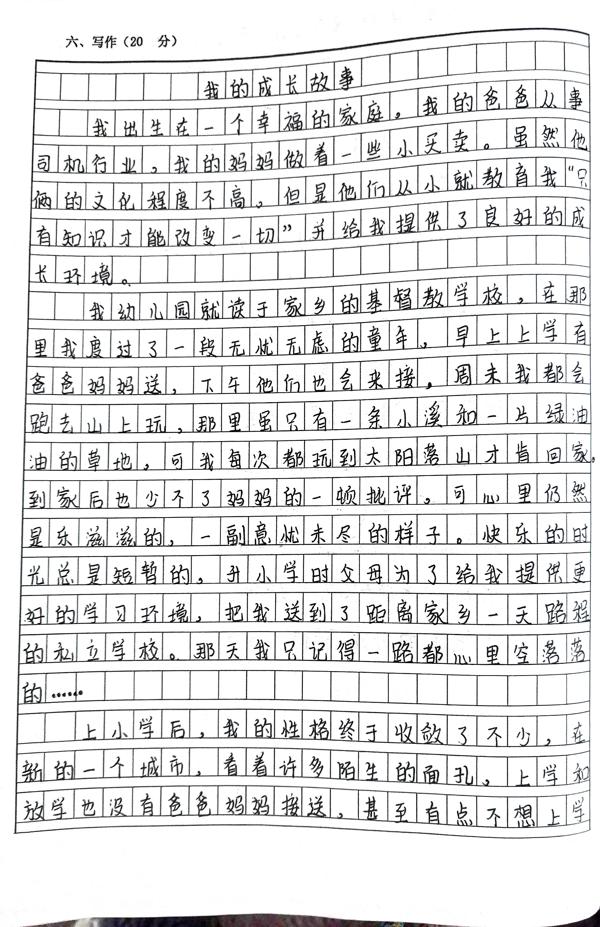 六、写作(20 分)
我的成长故事
我出生在一个幸福的家庭。我的爸爸从事
司机行业,我的妈妈做着一些小买卖。虽然他
俩的文化程度不高,但是他们从小就教育我“只
有知识才能改变一切”并给我提供了良好的成
长环境。
我幼儿园就读于家乡的基督教学校,在那
里我度过了一段无忧无虑的童年,早上上学有
爸爸妈妈送,下午他们也会来接,周末我都会
跑去山上玩,那里虽只有一条小溪和一片绿油
油的草地,可我每次都玩到太阳落山才肯回家。
到家后也少不了妈妈的一顿批评。可心里仍然
是乐滋滋的,一副意忧未尽的样子。快乐的时
光总是短暂的,升小学时父母为了给我提供更
好的学习环境,把我送到了距离家乡一天路程
的私立学校。那天我只记得一路都心里空落落
的……
上小学后,我的性格终于收敛了不少,在
新的一个城市,看着许多陌生的面孔,上学和
放学也没有爸爸妈妈接送,甚至有点不想上学